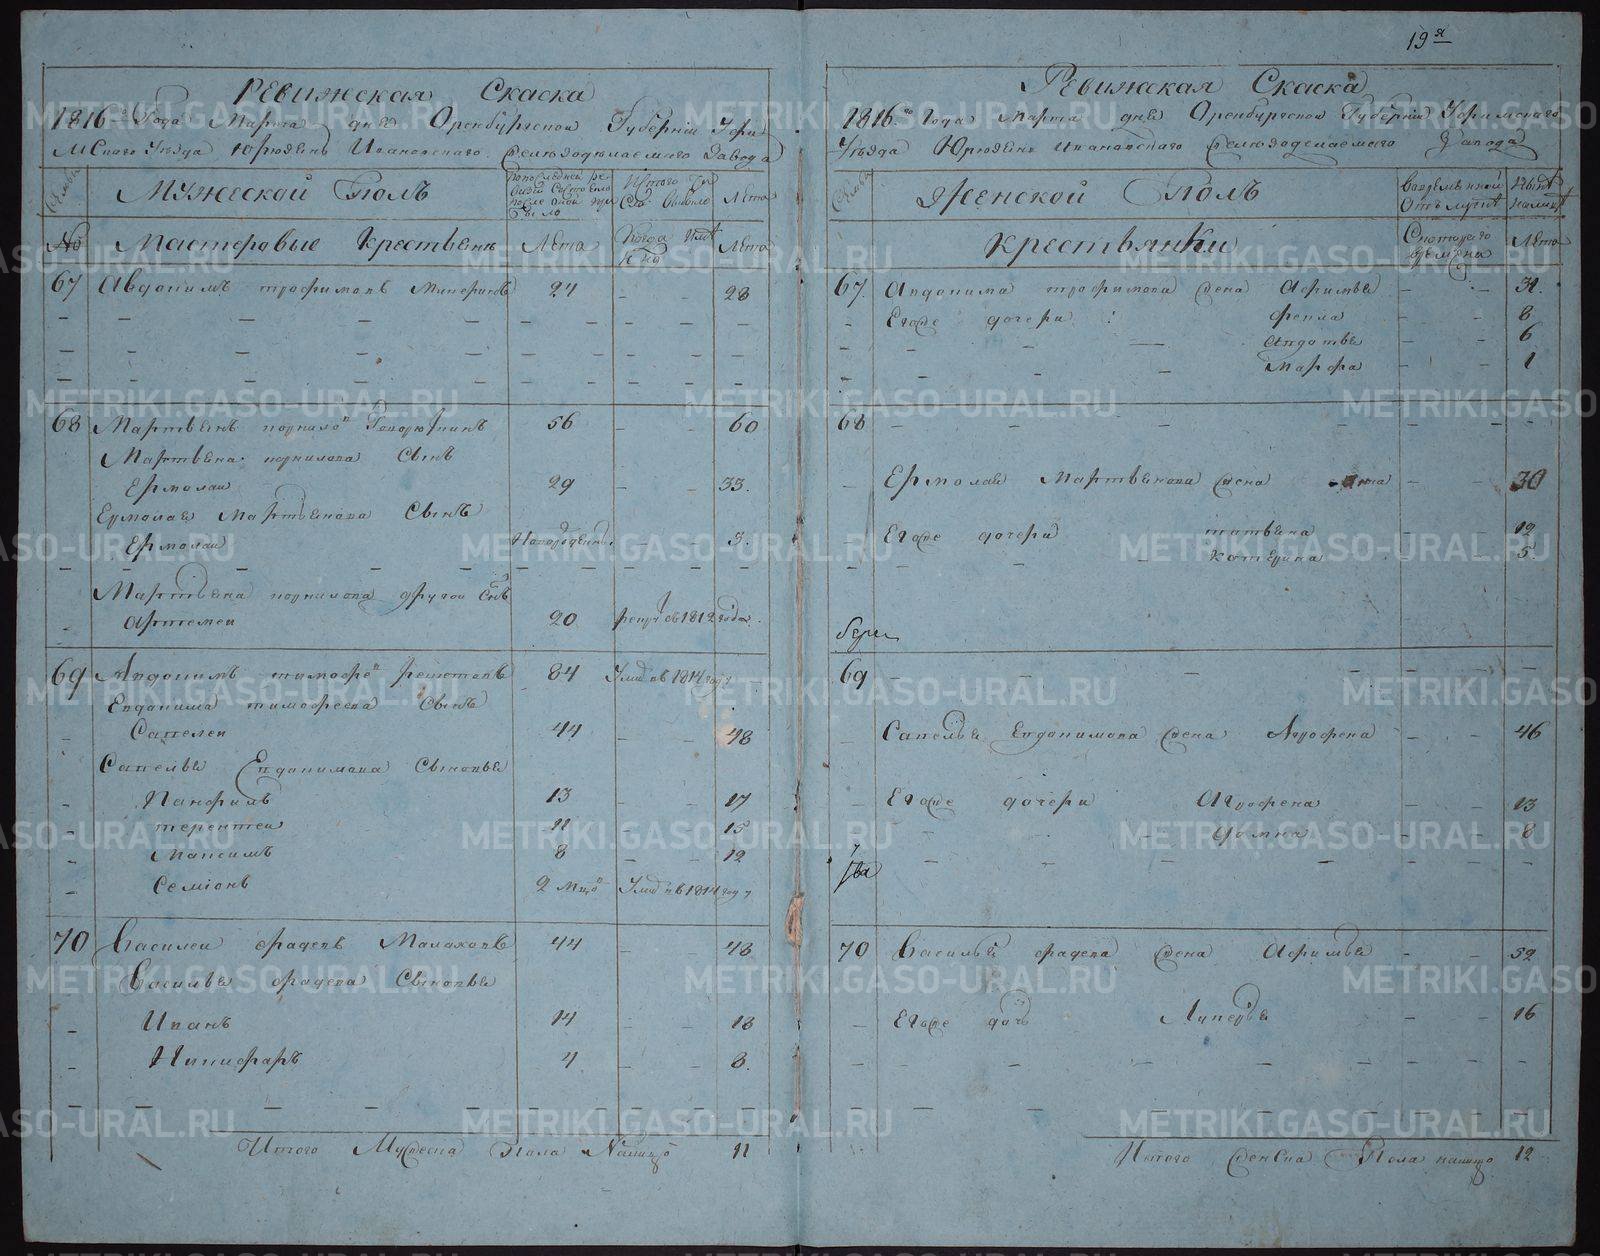 19я
Ревижская Скаска
1816го Года Марта дня Оренбургской Губернiи Уфи
мскаго Уъзда Юрюзень Ивановского железоделаемого Завода
Семьи
Мужеской Полъ
По последней ре
визiи состояло
и после оной при
было
Ис того чи
сла выбыло
Лета
No
Мастеровые Крестьянъ
Лета
Когда имъ
Лета
67 Авдонимъ трофимовъ Минеринъ 24 — — 28
68 Мартьянъ корнило Геворютинъ 56 — — 60
Мартьяна корнилова Сынъ
Ермолаи 29 — — 33.
Ермолае Мартьянова Сынъ
Ермолаи Новорожденны. — — 3.
Мартьяна корнилова другой Снъ
Артемеи 20 рекру въ 1812 годе.
69 Авдонимъ тимофе Решетовъ 84 Умре въ 1814 году —
Евдонима тимофеева Сынъ
Савелеи 44 48
Савелье Евдонимова Сыновье
Панфилъ 13 — — 17
терентеи 11 — — 15
Максимъ 8 — — 12
Семiонъ 2 мцо Умре въ 1814 году
70 Василеи фадеевъ Малаховъ 44 — 48
Василье фадеева Сыновье
Иванъ 14 — — 18
Никифаръ 4 — — 8.
Итого Мужеска Пола Налицо 11
Ревижская Скаска
1816го Года Марта дня Оренбургской Губернiи Уфимского
Уъзда Юрюзень ивановского железоделаемого Завода
Семьи
Женской Полъ
Во временной
отлучке
Ныне
налицо
крестьянки
С которого
времени
Лета
67. Авдонима трофимова жена Афимье — — 31.
Егоже дочери: фекла — — 8
Авдотье — — 6
Марфа — — 1
68
Ермолае Мартьянова жена Анна — — 30
Егоже дочери татьяна 12
катерина 5.
69
Савелье Евдонимова жена Агрофена — — 46
Егоже дочери Агрофена — — 13
домна — — 8
70 Василье фадеева жена Афимье — — 52
Егоже дочь Лукерье — — 16
Итого женска Пола налицо 12
METRIKI.GASO-URAL.RU